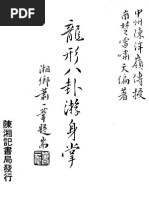 甲州陳泮嶺傳授
南楚雷嘯天編著
龍形八卦游身掌
湘鄉蕭一葦題耑
陳湘記書局發行